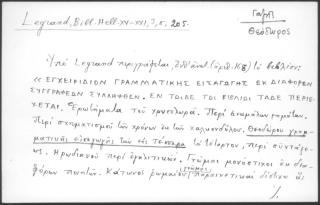 Legrand, Bibl. Hell. XV-XVI, 3, σ. 205.
Γαζῆ
Θεόδωρος
Ὑπὸ Legrand περιγράφεται, ἀριθ. τὸ βιβλίον:
« ΕΓΧΕΙΡΙΔΙΟΝ ΓΡΑΜΜΑΤΙΚΗΣ ΕΙΣΑΓΩΓΗΣ ΕΚ ΔΙΑΦΟΡΩΝ
ΣΥΓΓΡΑΦΕΩΝ ΣΥΛΛΗΦΘΕΝ. ΕΝ ΤΩΔΕ ΤΩ ΒΙΒΛΙΩ ΤΑΔΕ ΠΕΡΙΕ-
ΧΕΤΑΙ. Ἐρωτήματα τοῦ χρυσολωρᾶ. Περὶ ἀνωμάλων ρημάτων.
Περὶ σχηματισμοῦ τῶν χρόνων ἐκ τῶν χαλκονδύλου. Θεοδώρου γραμ-
ματικῆς εἰσαγωγῆς τῶν εἰς τέσσαρα τὸ τέταρτον, περὶ συντάξε-
ως. Ἡρωδιανοῦ περὶ ἐγκλιτικῶν. Γνῶμαι μονόστιχοι ἐκ δια-
φόρων ποιητῶν. Κάτωνος ρωμαίου γνῶμαι παραινετικαὶ δίστιχοι ἃς
./.